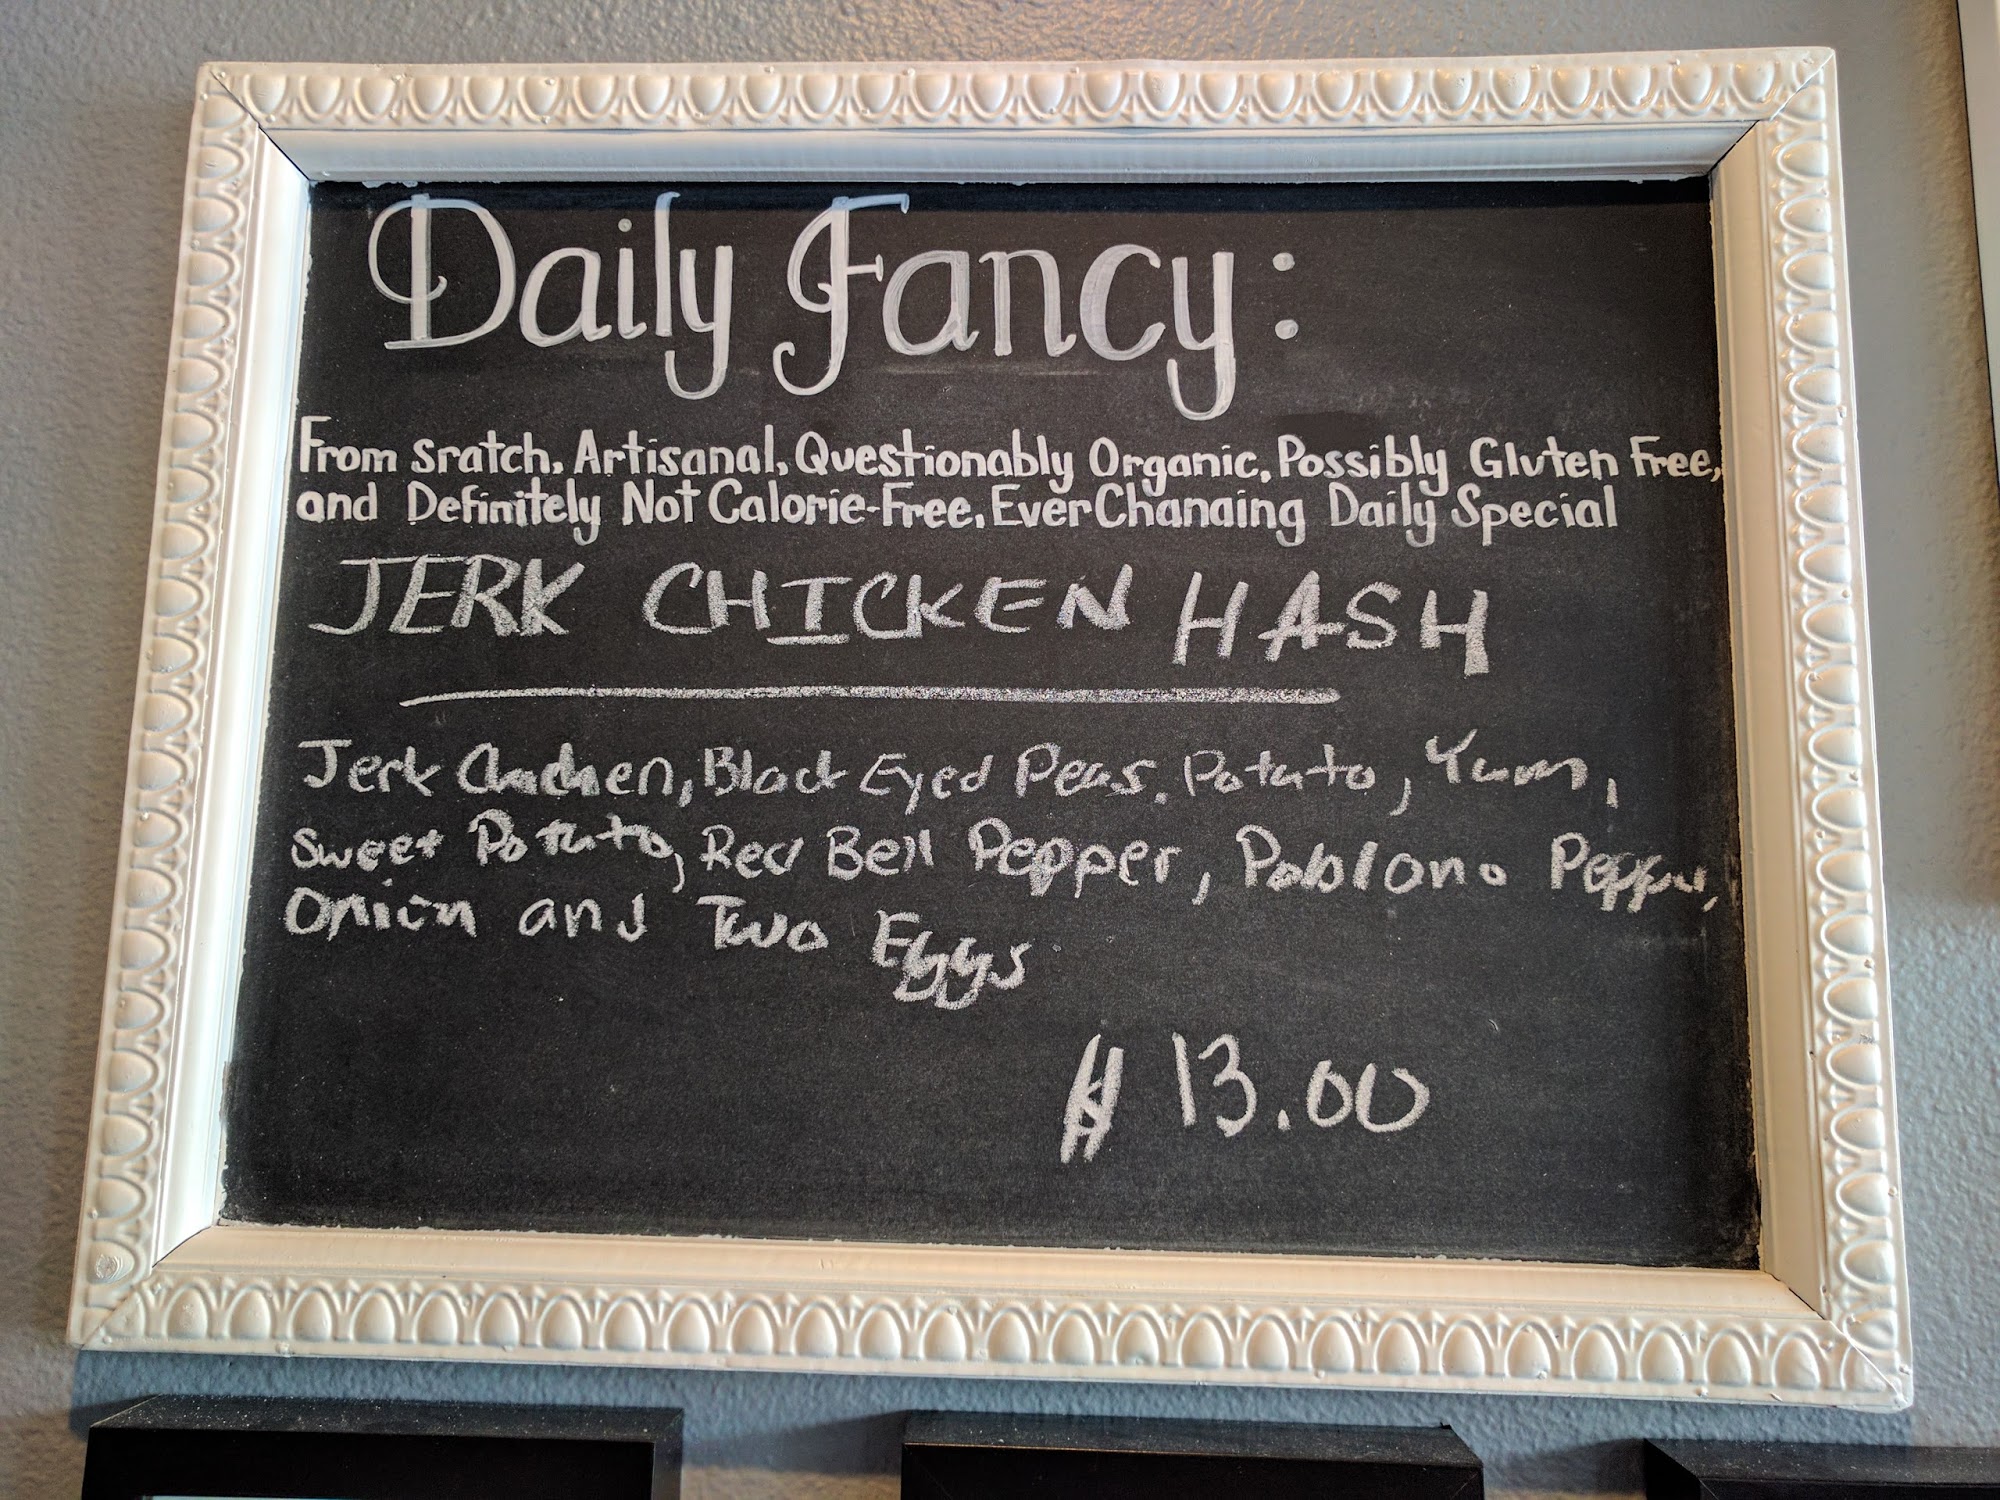 Daily Fancy:
From sratch, Artisanal, Questionably Organic, Possibly Gluten Free,
and Definitely Not Calorie-Free, Ever Changing Daily Special
JERK CHICKEN HASH
Jerk Chicken, Black Eyed Peas, Potato, Yum,
Sweet Potato, Red Bell Pepper, Poblano Pepper,
Onion and Two Eggs
$13.00